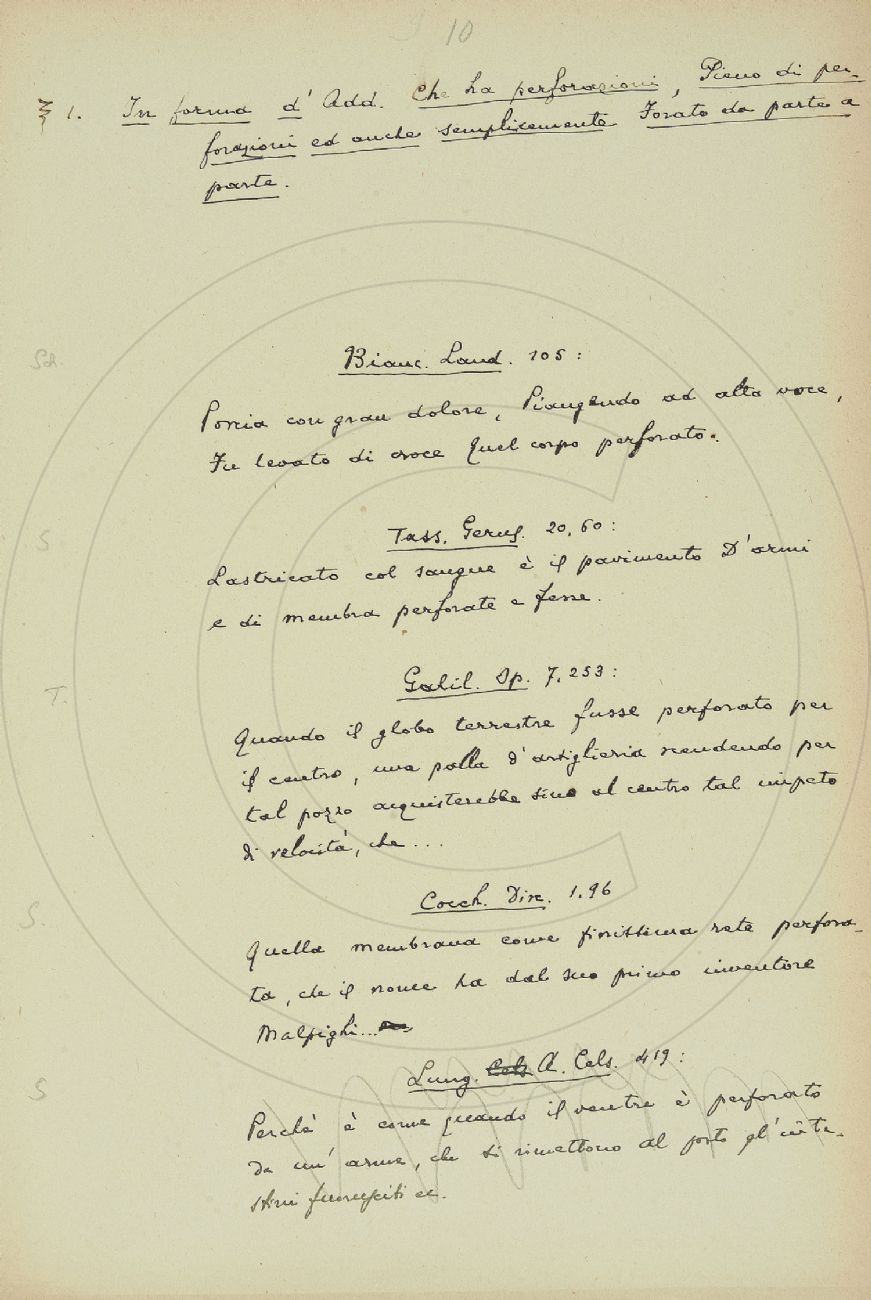 10
§ 1. In forma d' Add. Che ha perforazioni, Pieno di per-
forazioni ed anche semplicemente Forato da parte a
parte.
Bianc. Laud. 105:
Poscia con gran dolore, Piangendo ad alta voce,
Fu levato di croce Quel corpo perforato.
Tass. Gerus. 20, 60:
Lastricato col sangue è il pavimento D'armi
e di membra perforate e fesse.
Galil. Op. 7, 253:
Quando il globo terrestre fusse perforato per
il centro, una palla d'artiglieria scendendo per
tal pozzo acquisterebbe sino al centro tal impeto
di velocità, che...
Cocch. Disc. 1. 96
Quella membrana come finissima rete perfora-
ta, che il nome ha dal suo primo inventore
Malpighi...
Lung. A. Cels. 419:
Perchè è come quando il ventre è perforato
da un' arme, che si rimettono al posto gl'inte-
stini fuorusciti ec.
Sd.
S
T.
S.
S